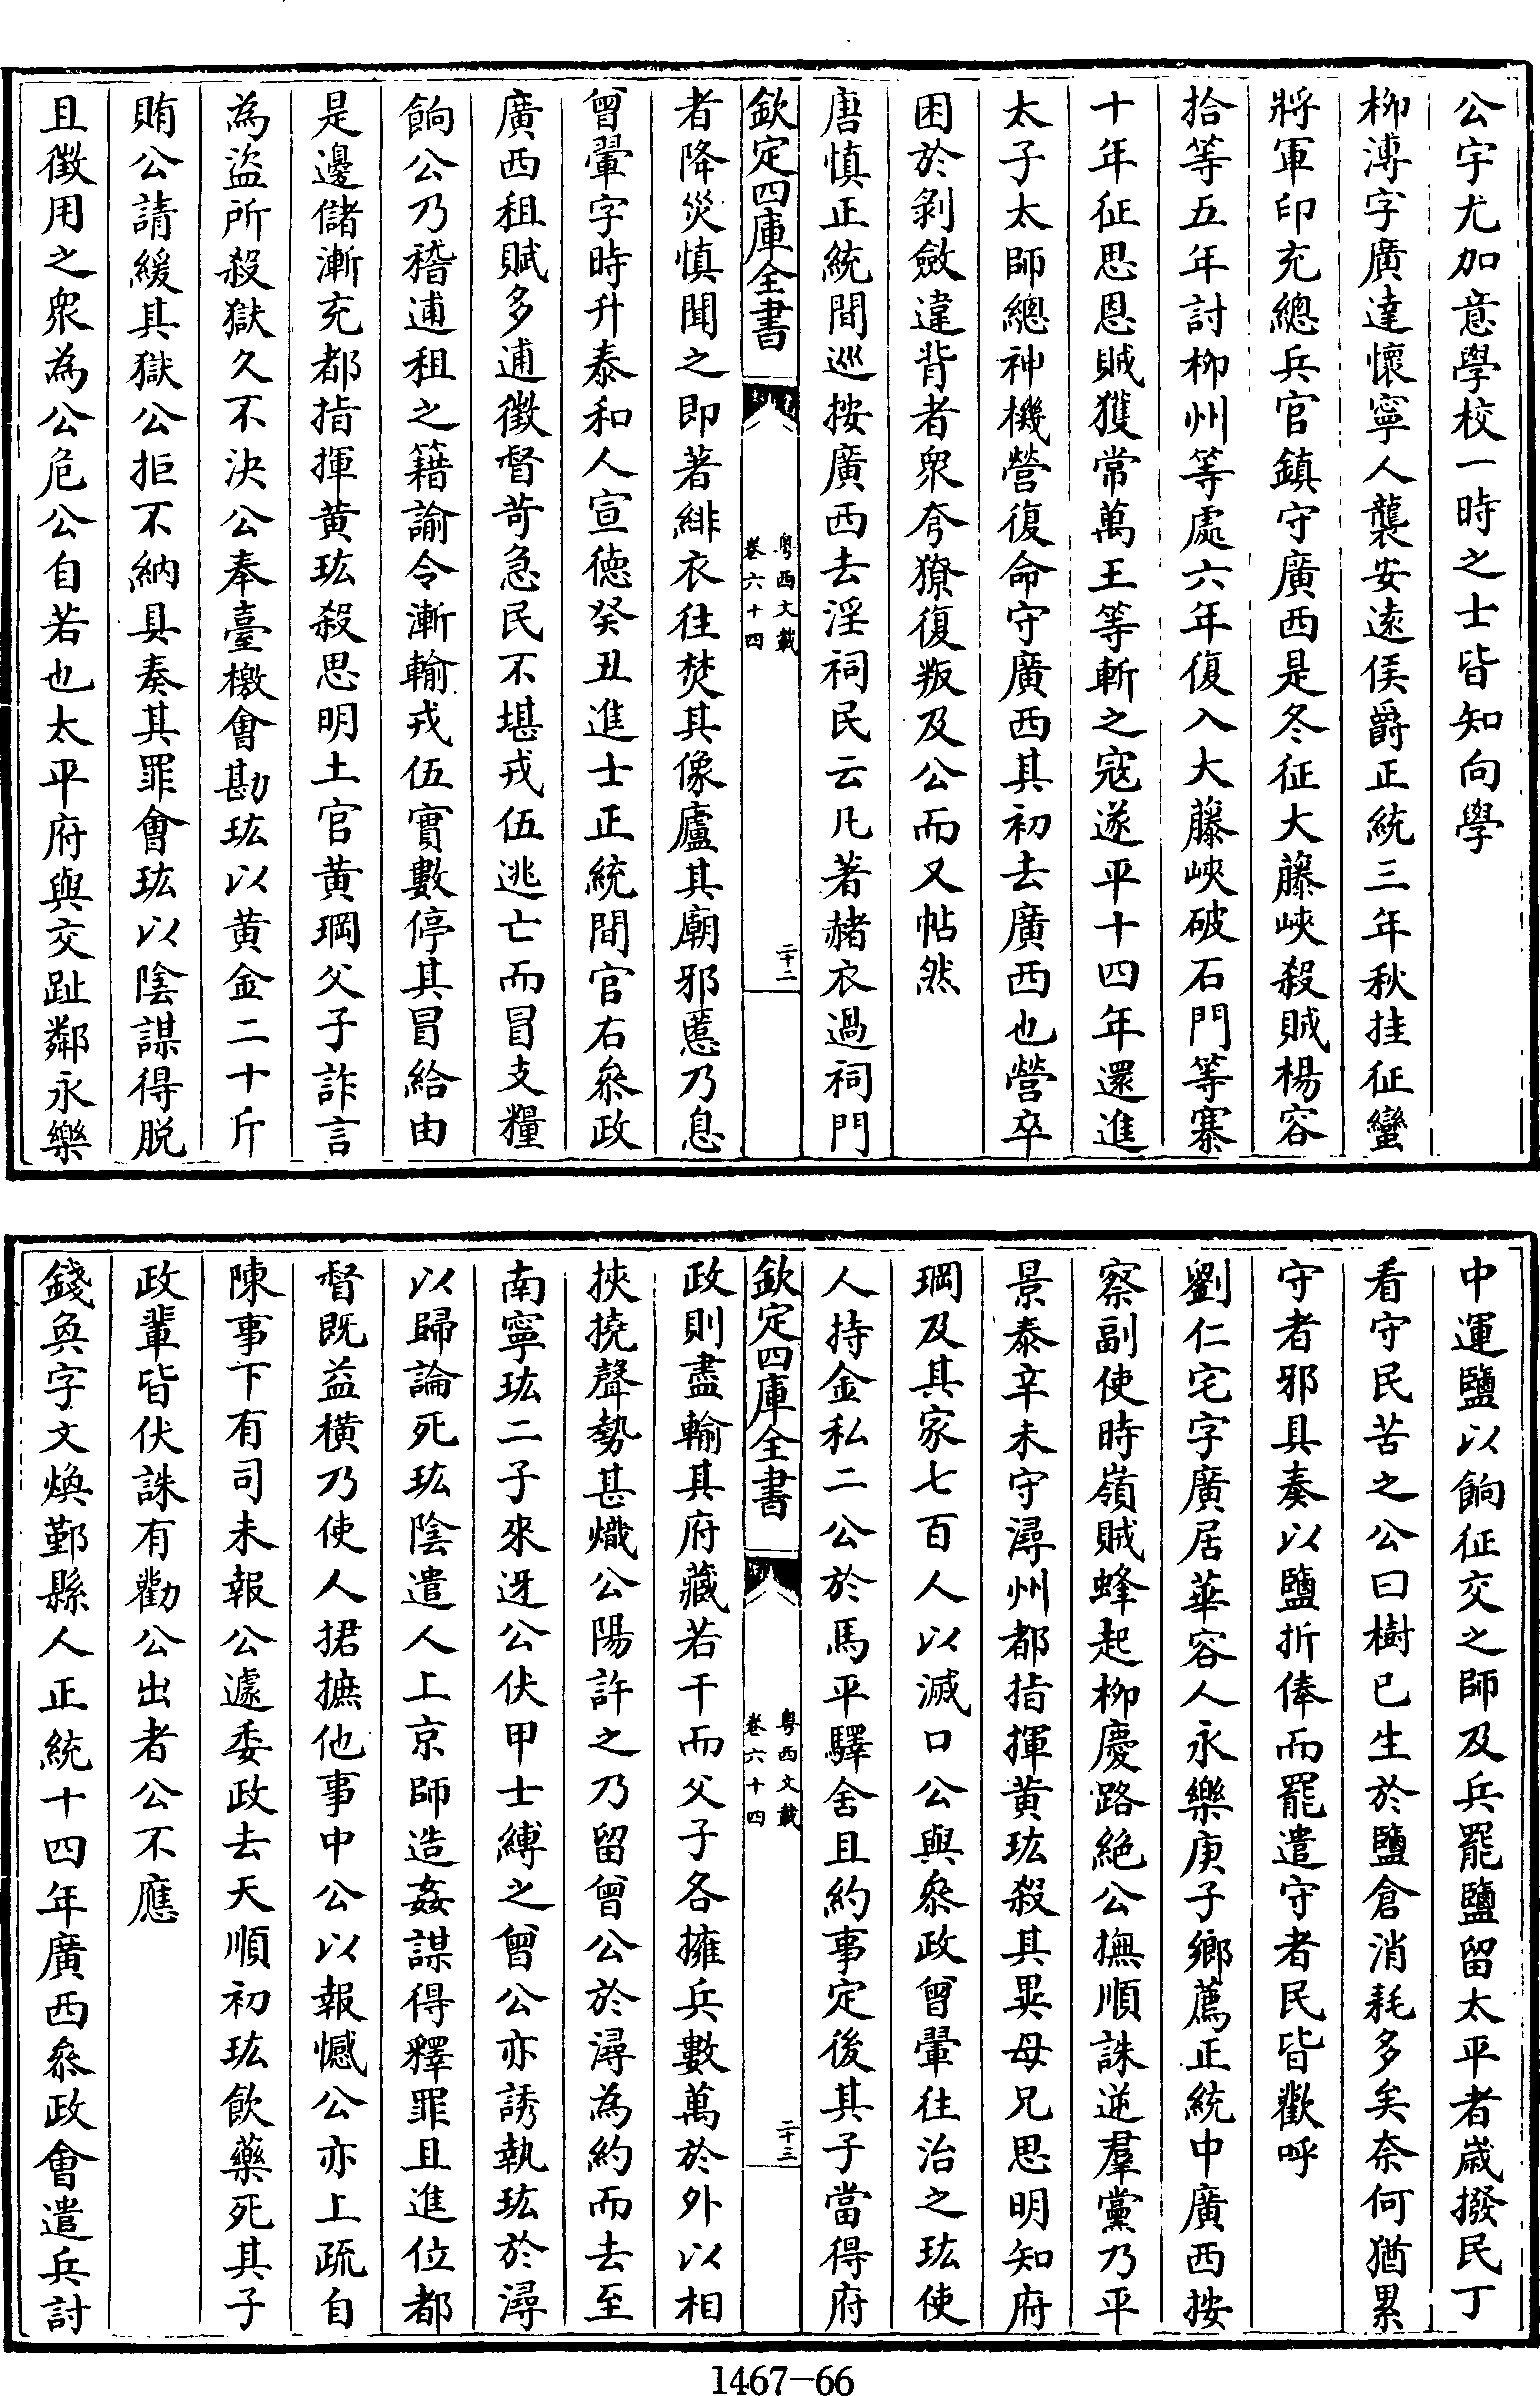 公宇尤加意學校一時之士皆知向學
柳溥字廣達懷寧人襲安遠侯爵正統三年秋挂征蠻
將軍印充總兵官鎮守廣西是冬征大藤峽殺賊楊容
拾等五年討柳州等處六年復入大藤峽破石門等寨
十年征思恩賊獲常萬王等斬之宼遂平十四年還進
太子太師總神機營復命守廣西其初去廣西也營卒
困於剥斂違背者衆夸獠復叛及公而又帖然
唐慎正統間巡按廣西去淫祠民云凡著赭衣過祠門
欽定四庫全書
粤西文載
卷六十四
二十二
者降災慎聞之即著緋衣往焚其像廬其廟邪慝乃息
曾翬字時升泰和人宣徳癸丑進士正統間官右叅政
廣西租賦多逋徵督苛急民不堪戎伍逃亡而冒支糧
餉公乃稽逋租之籍諭令漸輸戎伍實數停其冒給由
是邊儲漸充都指揮黄玹殺思明土官黄㻶父子詐言
為盜所殺獄久不決公奉臺檄會勘玹以黄金二十斤
賄公請緩其獄公拒不納具奏其罪會玹以陰謀得脱
且徵用之衆為公危公自若也太平府與交趾鄰永樂
中運鹽以餉征交之師及兵罷鹽留太平者嵗撥民丁
看守民苦之公曰樹已生於鹽倉消耗多矣奈何猶累
守者邪具奏以鹽折俸而罷遣守者民皆歡呼
劉仁宅字廣居華容人永樂庚子鄉薦正統中廣西按
察副使時嶺賊蜂起柳慶路絶公撫順誅逆羣黨乃平
景泰辛未守潯州都指揮黄玹殺其異母兄思明知府
㻶及其家七百人以滅口公與叅政曾翬往治之玹使
人持金私二公於馬平驛舍且約事定後其子當得府
欽定四庫全書
粤西文載
卷六十四
二十三
政則盡輸其府藏若干而父子各擁兵數萬於外以相
挾撓聲勢甚熾公陽許之乃留曾公於潯為約而去至
南寧玹二子來迓公伏甲士縛之曾公亦誘執玹於潯
以歸論死玹陰遣人上京師造姦謀得釋罪且進位都
督既益横乃使人捃摭他事中公以報憾公亦上疏自
陳事下有司未報公遽委政去天順初玹飲藥死其子
政輩皆伏誅有勸公出者公不應
錢奐字文煥鄞縣人正統十四年廣西叅政會遣兵討
1467-66